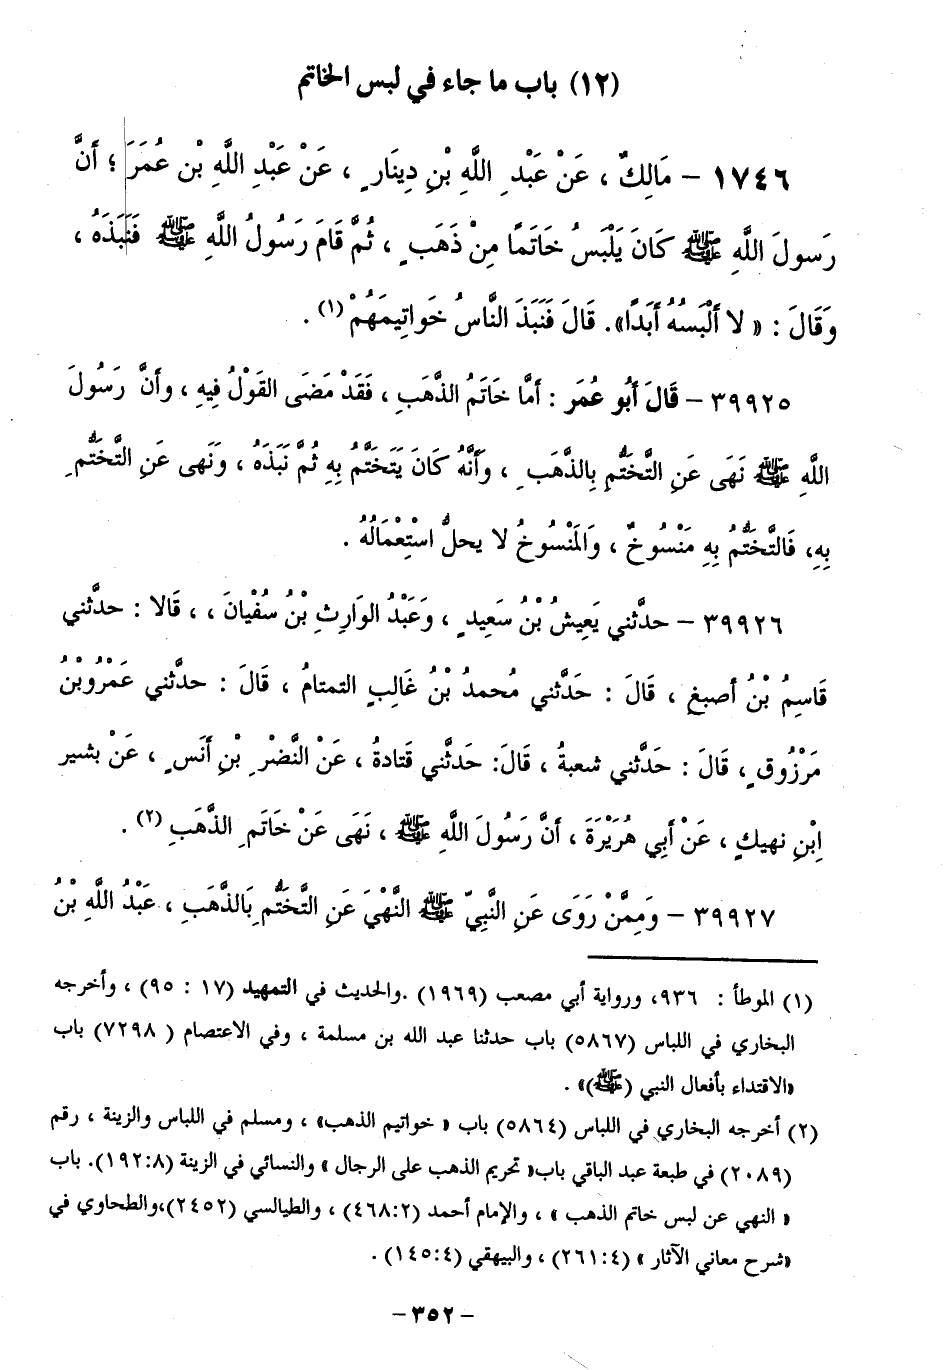 (١٢) باب ما جاء في لبس الخاتم
١٧٤٦ – مَالِكٌ ، عَنْ عَبْدِ اللَّهِ بْنِ دِينَارٍ ، عَنْ عَبْدِ اللَّهِ بْنِ عُمَرَ ؛ أَنَّ
رَسولَ اللَّهِ ﷺ كَانَ يَلْبَسُ خَاتَمًا مِنْ ذَهَبٍ ، ثُمَّ قَامَ رَسُولُ اللَّهِ ﷺ فَنَبَذَهُ ،
وَقَالَ : « لا أَلْبَسُهُ أَبَدًا». قَالَ فَنَبَذَ النَّاسُ خَواتِيمَهُمْ (١) .
٣٩٩٢٥ – قَالَ أَبُو عُمَر : أمَّا خَاتَمُ الذَّهَبِ ، فَقَدْ مَضَى القَوْلُ فِيهِ ، وأنَّ رَسُولَ
اللَّهِ ﷺ نَهَى عَنِ التَّخَتُّمِ بِالذَّهَبِ ، وَأنَّهُ كَانَ يَتَخَتَّمُ بِهِ ثُمَّ نَبَذَهُ ، ونَهى عَنِ التَّخَتُّمِ
بِهِ، فَالتَّخَتُّمُ بِهِ مَنْسُوخٌ ، وَالمَنْسُوخُ لا يحلُّ اسْتِعْمَالُهُ .
٣٩٩٢٦ – حدَّثني يَعِيشُ بْنُ سَعِيدٍ ، وَعَبْدُ الوَارِثِ بْنُ سُفْيانَ ، ، قَالا : حدَّثني
قَاسِمُ بْنُ أصبغٍ ، قَالَ : حَدَّثني مُحمدُ بْنُ غَالبٍ التمتامُ ، قَالَ : حدَّثني عَمْرُو بْنُ
مَرْزُوقٍ ، قَالَ : حَدَّثني شعبةُ ، قَالَ: حدَّثني قَتادةُ ، عَنْ النَّضْرِ بْنِ أَنَسٍ ، عَنْ بشير
ابْنِ نهيكٍ ، عَنْ أبي هُرَيْرَةَ ، أَنَّ رَسُولَ اللَّهِ ﷺ ، نَهَى عَنْ خَاتَمِ الذَّهَبِ (٢) .
٣٩٩٢٧ – وَمِمَّنْ رَوَى عَنِ النَّبِيِّ ﷺ النَّهْيَ عَنِ التَّخَتُّمِ بَالذَّهَبِ ، عَبْدُ اللَّهِ بْنُ
(١) الموطأ : ٩٣٦، ورواية أبي مصعب (١٩٦٩) .والحديث في التمهيد (١٧ : ٩٥) ، وأخرجه
البخاري في اللباس (٥٨٦٧) باب حدثنا عبد الله بن مسلمة ، وفي الاعتصام ( ٧٢٩٨) باب
«الاقتداء بأفعال النبي (ﷺ)» .
(٢) أخرجه البخاري في اللباس (٥٨٦٤) باب « خواتيم الذهب» ، ومسلم في اللباس والزينة ، رقم
(٢٠٨٩) في طبعة عبد الباقي باب« تحريم الذهب على الرجال » والنسائي في الزينة (١٩٢:٨). باب
« النهي عن لبس خاتم الذهب » ، والإمام أحمد (٤٦٨:٢) ، والطيالسي (٢٤٥٢)،والطحاوي في
«شرح معاني الآثار » (٢٦١:٤) ، والبيهقي (١٤٥:٤) .
–٣٥٢–